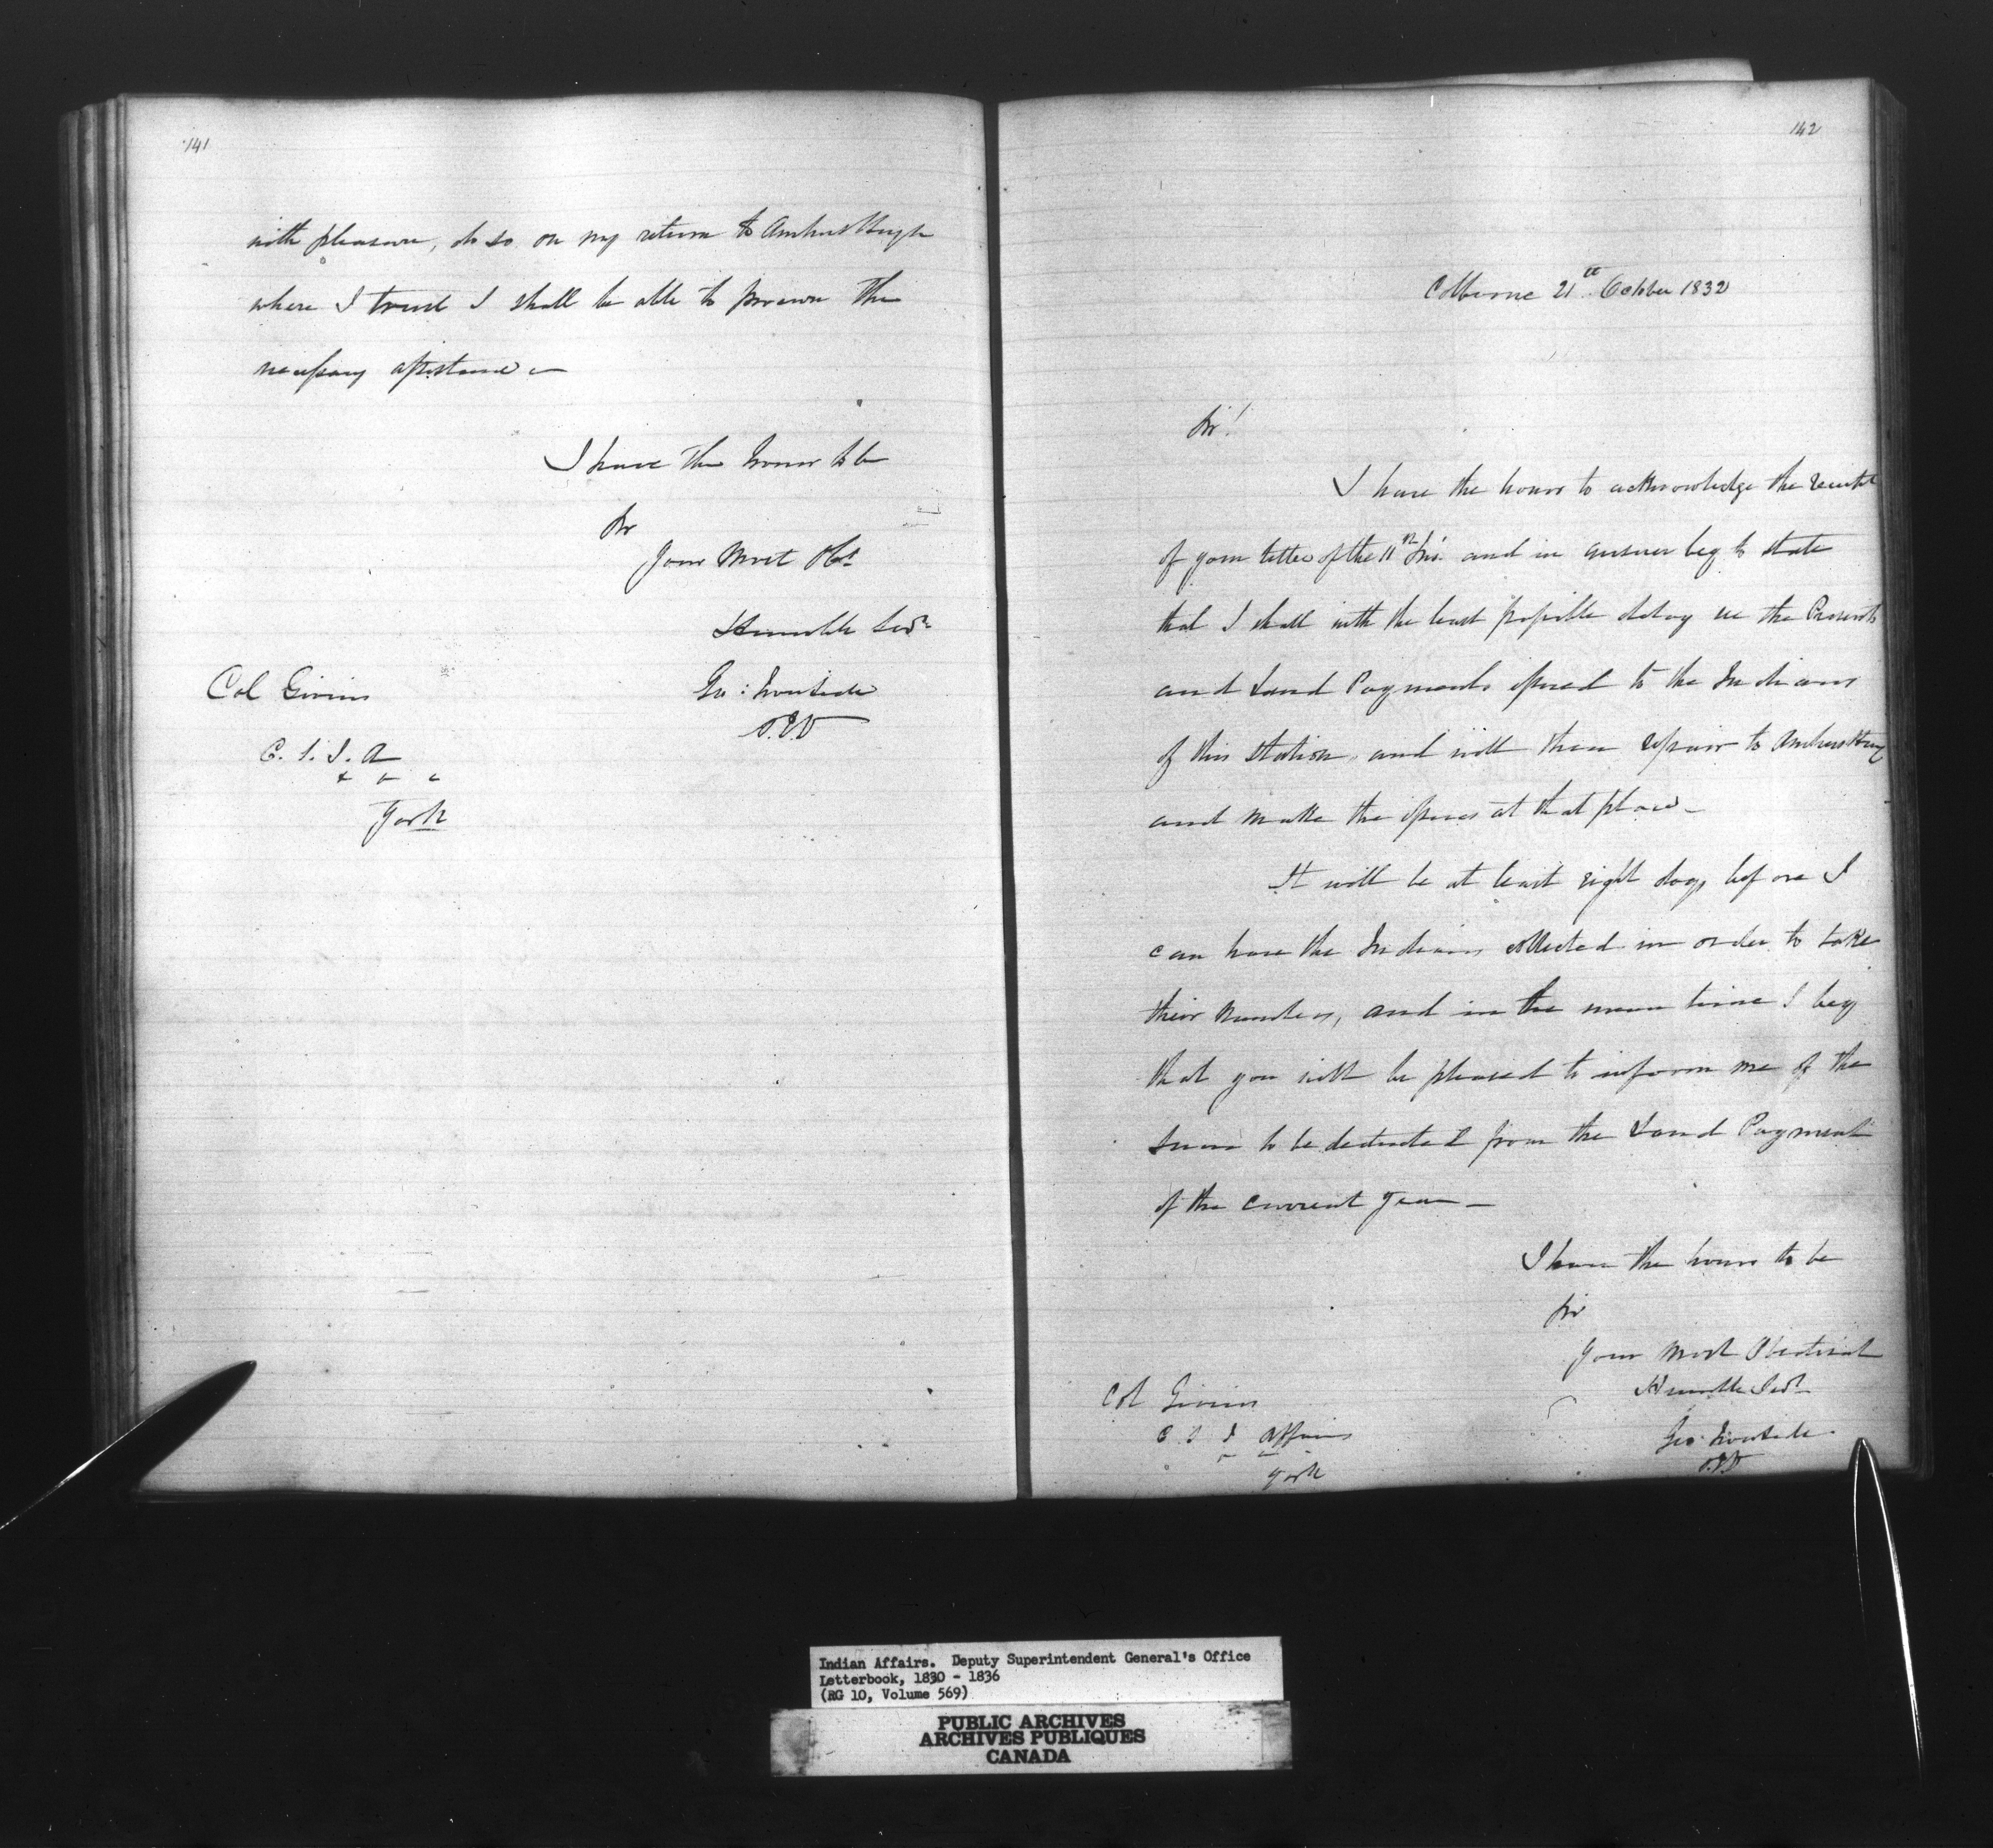 141
with pleasure, do so on my return to Amherstburgh
where I trust I shall be able to procure the
necessary assistance —
I have the honor to be
Sir
Your Most Obt
Humble Servt
Geo: Ironside
S.I.D
Col Givins
C. S. I. A
York
142
Colborne 21st October 1832
Sir!
I have the honor to acknowledge the receipt
of your letter of the 11th Inst. and in answer beg to state
that I shall with the least possible delay see the Presents
and Land Payments issued to the Indians
of this Station, and will then repair to Amherstburg
and make the issues at that place —
It will be at least eight days before I
can have the Indians collected in order to take
their numbers, and in the mean time I beg
that you will be pleased to inform me of the
sum to be deducted from the Land Payment
of the current year —
I have the honor to be
Sir
Your Most Obedient
Humble Servt
Geo: Ironside
S.I.D
Col Givins
C S I Affairs
York
Indian Affairs. Deputy Superintendent General's Office
Letterbook, 1830 - 1836
(RG 10, Volume 569)
PUBLIC ARCHIVES
ARCHIVES PUBLIQUES
CANADA